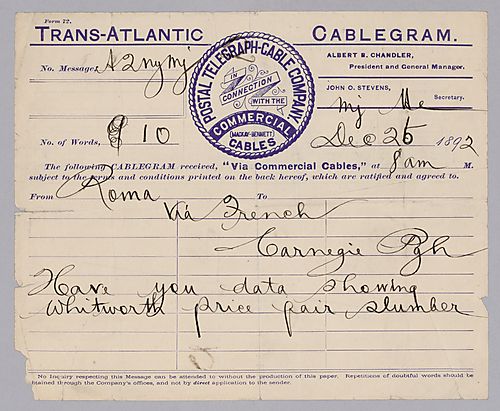 Form 72.
TRANS-ATLANTIC CABLEGRAM.
POSTAL TELEGRAPH-CABLE COMPANY
IN
CONNECTION
WITH THE
COMMERCIAL
(MACKAY-BENNETT)
CABLES
ALBERT B. CHANDLER,
President and General Manager.
JOHN O. STEVENS,
Secretary.
No. Message, A2nymj
No. of Words, 9 10
Dec 26 1892
The following CABLEGRAM received, "Via Commercial Cables," at 8am M.
subject to the terms and conditions printed on the back hereof, which are ratified and agreed to.
From Roma To
Via French
Carnegie Pgh
Have you data showing
Whitworth price pair slumber
No Inquiry respecting this Message can be attended to without the production of this paper. Repetitions of doubtful words should be
obtained through the Company's offices, and not by direct application to the sender.